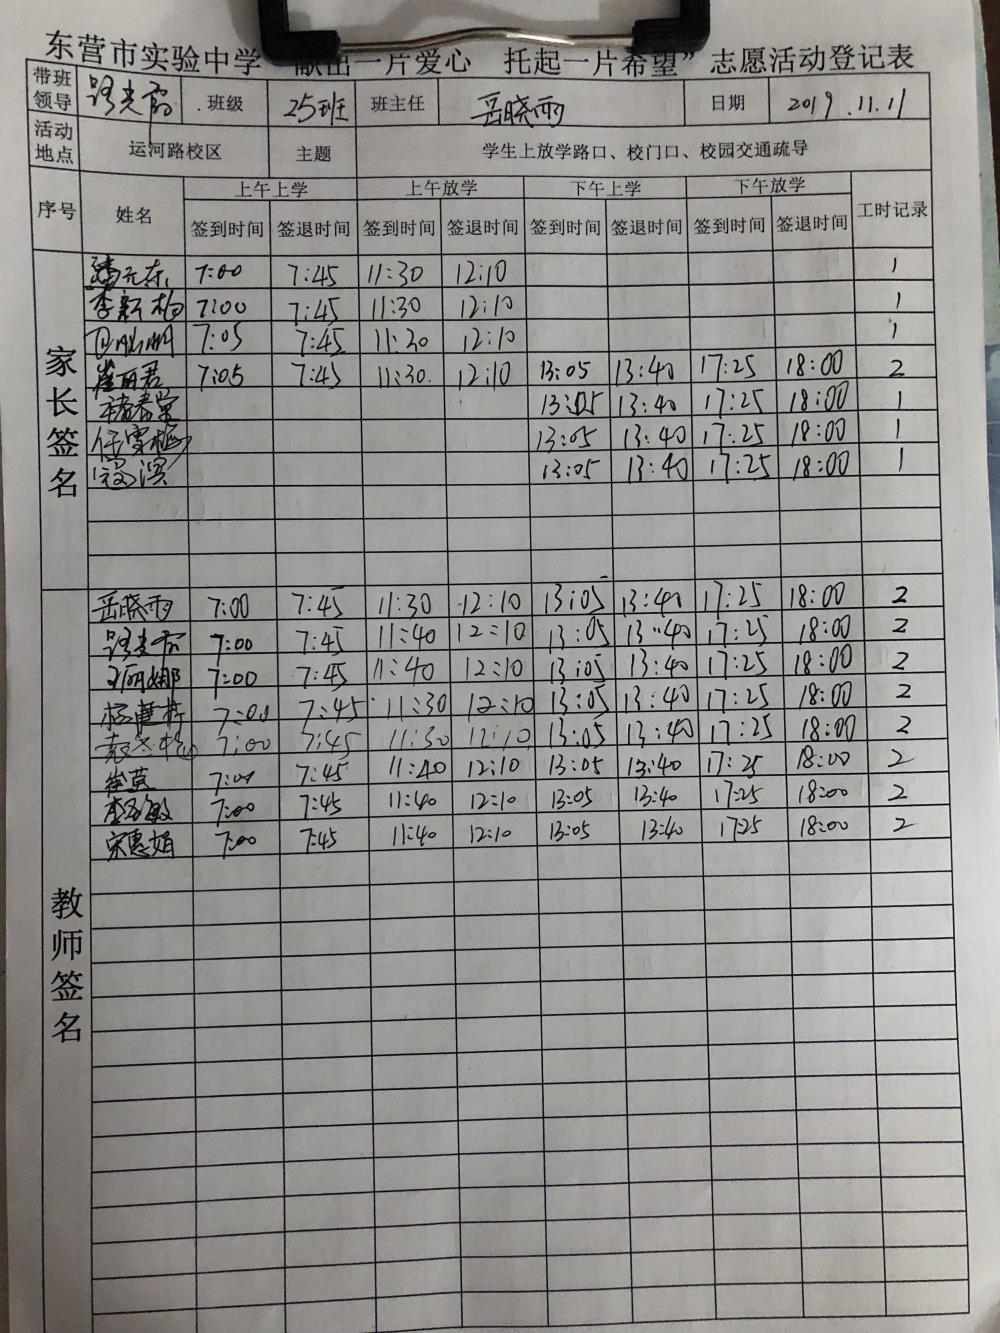 东营市实验中学“献出一片爱心 托起一片希望”志愿活动登记表
带班领导 班级 25班 班主任 岳晓雨 日期 2019.11.11
活动地点 运河路校区 主题 学生上放学路口、校门口、校园交通疏导
序号 姓名 上午上学 上午放学 下午上学 下午放学 工时记录
签到时间 签退时间 签到时间 签退时间 签到时间 签退时间 签到时间 签退时间
家长签名
7:00 7:45 11:30 12:10 1
李新柏 7:00 7:45 11:30 12:10 1
7:05 7:45 11:30 12:10 1
崔丽君 7:05 7:45 11:30 12:10 13:05 13:40 17:25 18:00 2
13:05 13:40 17:25 18:00 1
13:05 13:40 17:25 18:00 1
寇滨 13:05 13:40 17:25 18:00 1
教师签名
岳晓雨 7:00 7:45 11:30 12:10 13:05 13:40 17:25 18:00 2
7:00 7:45 11:40 12:10 13:05 13:40 17:25 18:00 2
王丽娜 7:00 7:45 11:40 12:10 13:05 13:40 17:25 18:00 2
7:00 7:45 11:30 12:10 13:05 13:40 17:25 18:00 2
7:00 7:45 11:30 12:10 13:05 13:40 17:25 18:00 2
崔英 7:00 7:45 11:40 12:10 13:05 13:40 17:25 18:00 2
7:00 7:45 11:40 12:10 13:05 13:40 17:25 18:00 2
宋惠娟 7:00 7:45 11:40 12:10 13:05 13:40 17:25 18:00 2